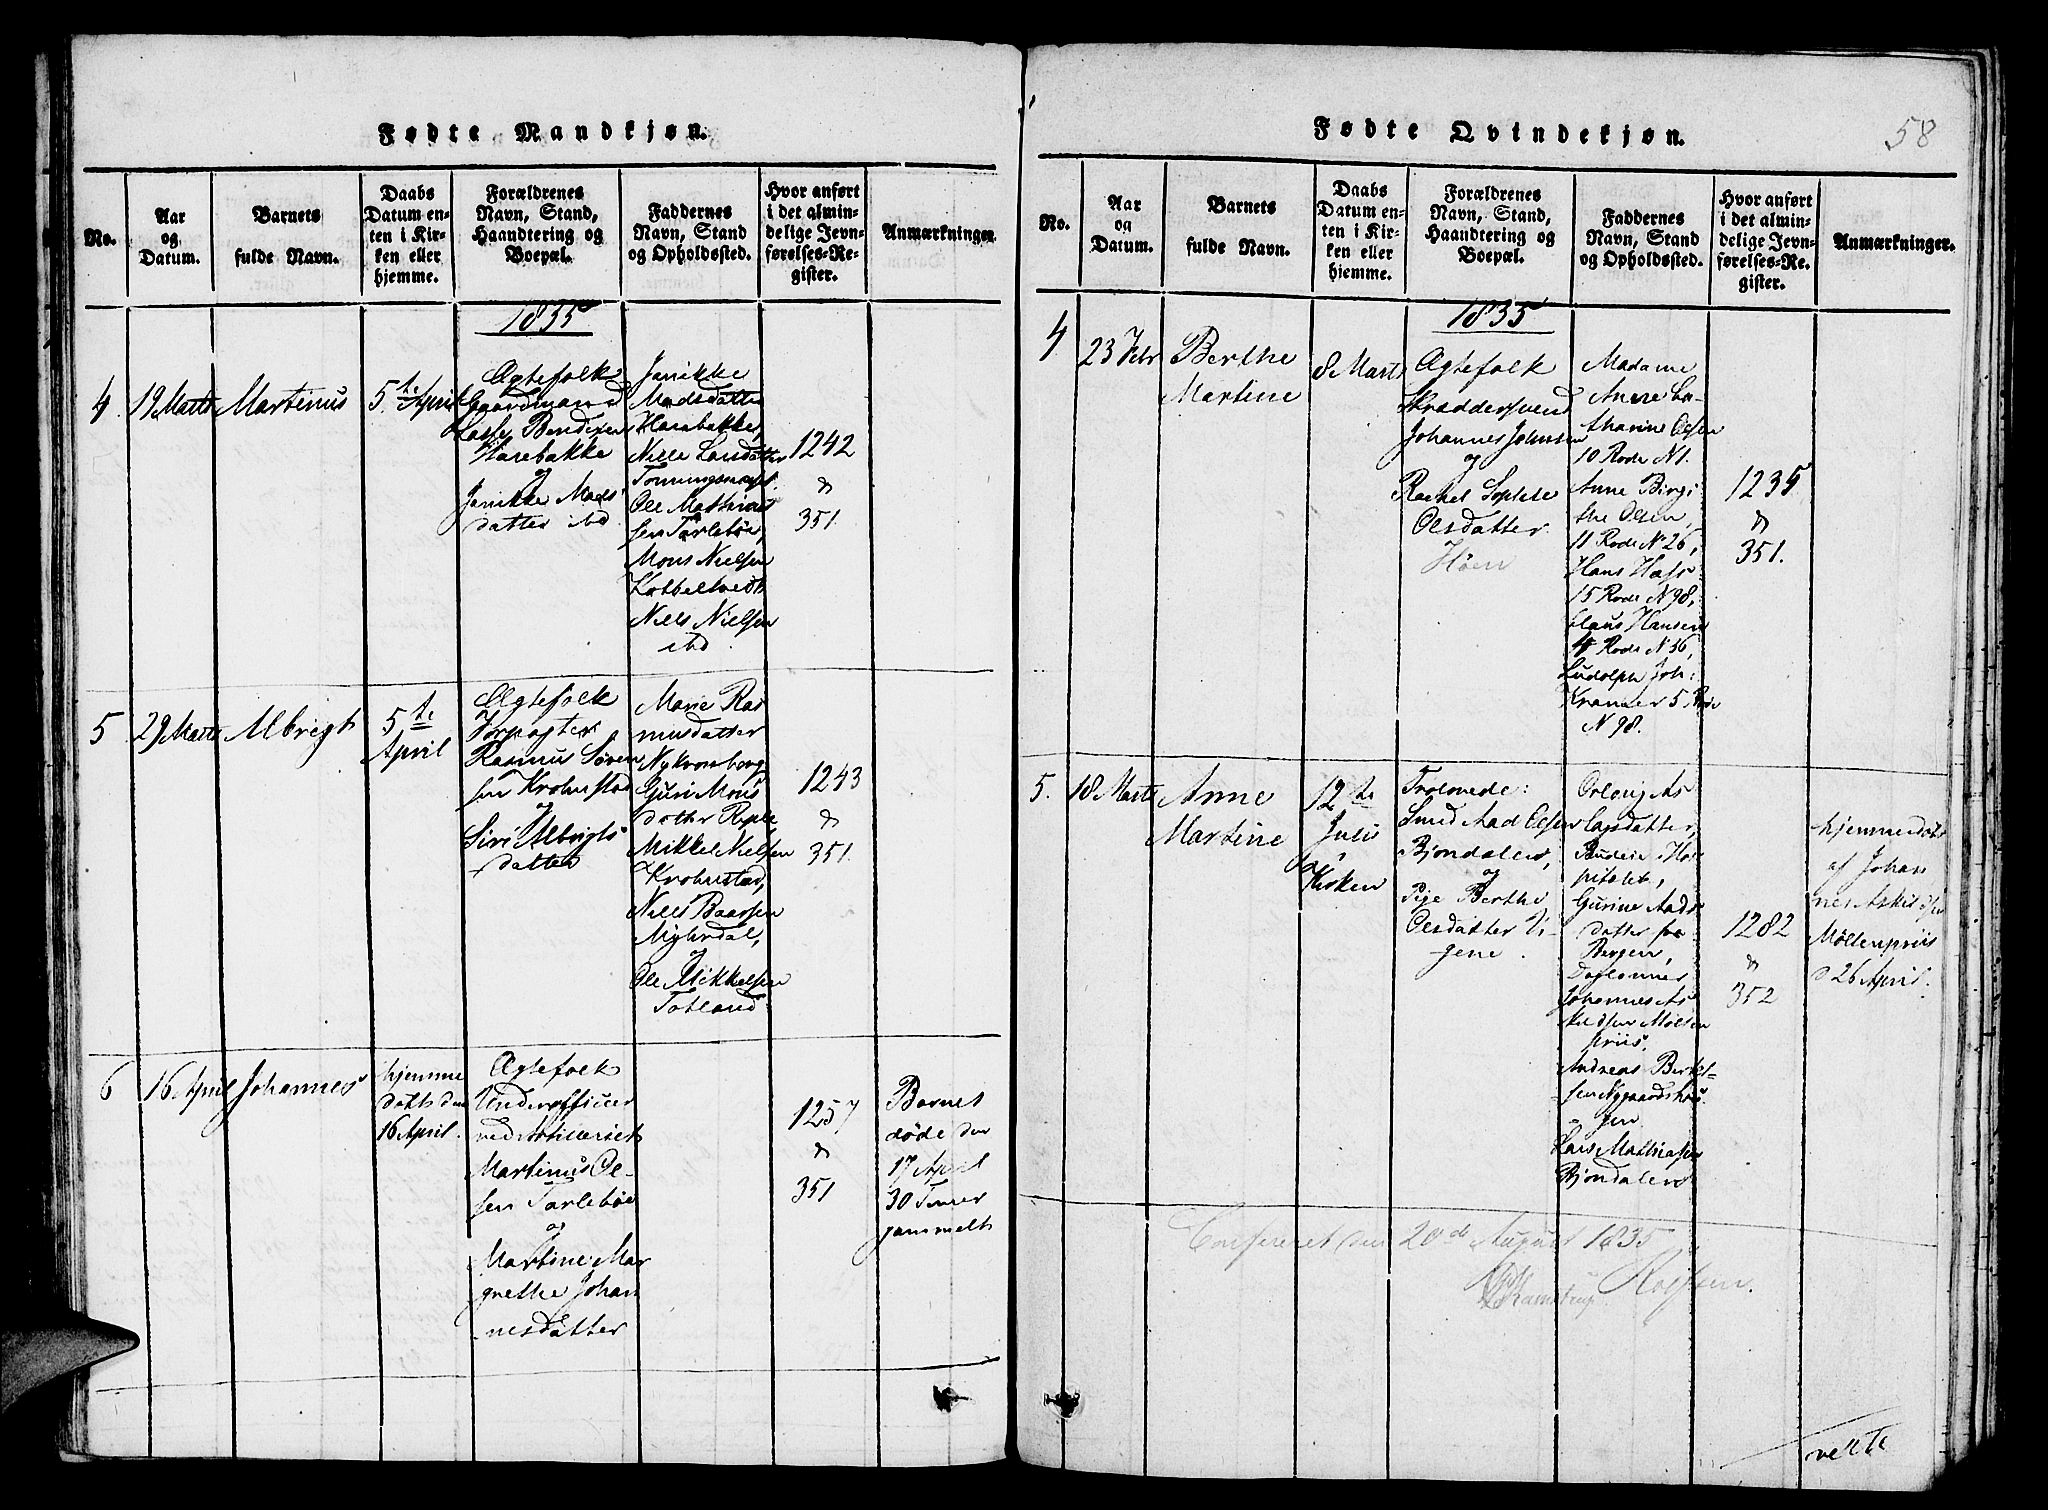 Fødte Mandkjøn.
No.
Aar
og
Datum.
Barnets
fulde Navn.
Daabs
Datum en-
ten i Kir-
ken eller
hjemme.
Forældrenes
Navn, Stand,
Haandtering og
Boepæl.
Faddernes
Navn, Stand
og Opholdssted.
Hvor anført
i det almin-
delige Jevn-
førelses-Re-
gister.
Anmærkninger.
1835
4.
19 Marts
Martinus
5te April
Ægtefolk
Gaardmand
Lasse Bendixen
Harebakke
og
Janikke Mads
datter ibd.
Janikke
Madsdatter
Harebakke,
Nille Larsdatter
Ole Mathias
sen Tarlebøe,
Mons Nielsen
Kobbeltvedt
Niels Nielsen
ibd.
1242
351.
5
29 Marts
Albrigt
5te
April
Ægtefolk
Forpagter
Rasmus Søren
sen Krohnstad
og
Siri Albrigts
datter
Marie Ras
musdatter
Nykronborg
Guri Mons
datter
Mikkel Nielsen
Krohnstad,
Niels Baarsen
Myhrdal,
og
Ole Mikkelsen
Totland
1243
351.
6
16 April
Johannes
hjemme
døbt den
16 April.
Ægtefolk
Underofficer
ved Artilleriet
Martinus Ol-
sen Tarlebøe
og
Martine Mar
grethe Johan
nesdatter
1257
351
Barnet
døde den
17 April
30 Timer
gammelt
Fødte Qvindekjøn.
58
No.
Aar
og
Datum.
Barnets
fulde Navn.
Daabs
Datum en-
ten i Kir-
ken eller
hjemme.
Forældrenes
Navn, Stand,
Haandtering og
Boepæl.
Faddernes
Navn, Stand
og Opholdssted.
Hvor anført
i det almin-
delige Jevn-
førelses-Re-
gister.
Anmærkninger.
1835
4
23 Febr
Berthe
Martine
8 Marts
Ægtefolk
Skræddersvend
Johannes Johnsen
og
Rachel Sophie
Olsdatter
Høen
Madame
Anne Ca-
tharine Olsen
10 Rode N 1.
Anne Birgi
the Olsen,
11 Rode N 26,
Hans Hass
15 Rode N 98,
Claus Hansen
Rode N 36,
Ludolph Joh:
Kramer 5 Rode
N 98.
1235
351.
5.
18 Marts
Anne
Martine
12te
Juli
i
Kirken
Trolovede:
Smed Aad Olsen
Bjøndalen,
og
Pige Berthe
Olsdatter Vi-
gene.
As
lagsdatter,
Hos
pitalet,
Gurine Aads
datter fra
Bergen,
Johannes As
kildsen Møllen
priis,
Andreas Bertel-
sen Nygaardshou
gen
Lars Mathiasen
Bjøndalen
1282
352
hjemmedøbt
af Johan
nes Askildsen
Møllenpriis
d 26 April.
Confereret den 20de August 1835
Kamstrup
vende